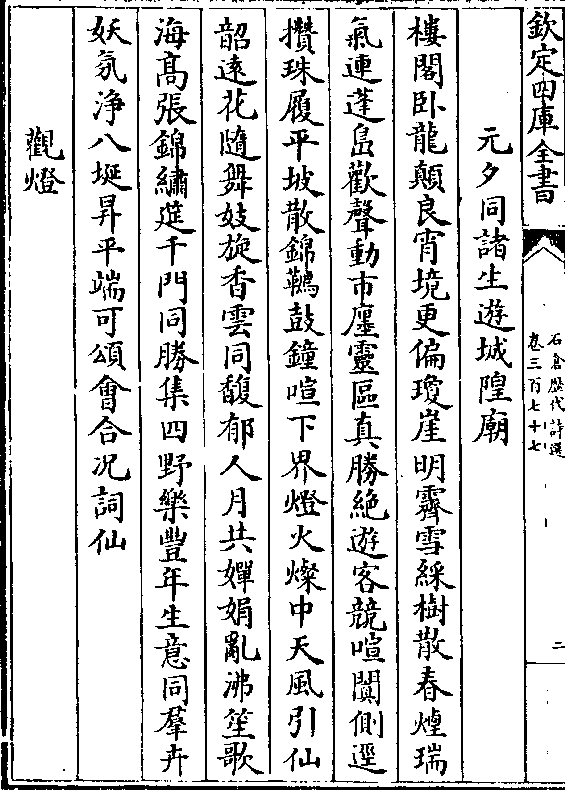 欽定四庫全書
石倉歷代詩選
卷三百七十七
二
元夕同諸生遊城隍廟
樓閣卧龍顛良宵境更偏瓊崖明霽雪綵樹散春煙瑞
氣連蓬島歡聲動市廛靈區真勝絶遊客競喧闐側逕
攢珠履平坡散錦韉鼓鐘喧下界燈火燦中天風引仙
韶遠花隨舞妓旋香雲同馥郁人月共嬋娟亂沸笙歌
海高張錦繡筵千門同勝集四野樂豐年生意同羣卉
妖氛净八埏昇平端可頌會合况詞仙
觀燈